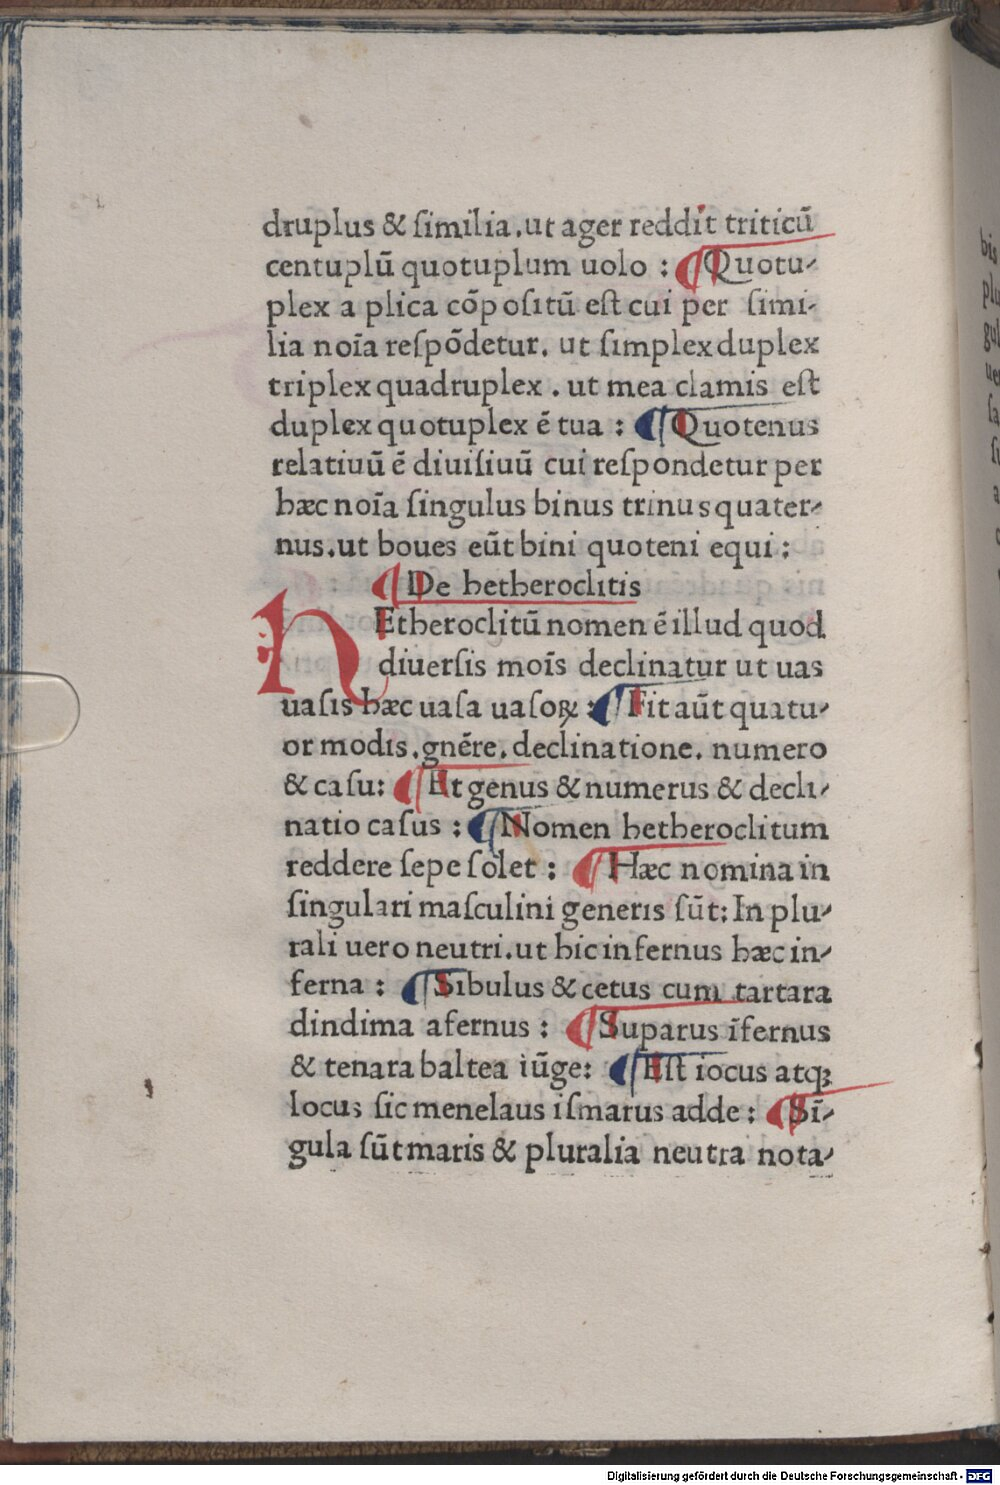 druplus & ſimilia .ut ager reddit triticū
centuplū quotuplum uolo : ¶ Quotu-
plex a plica cōpoſitū eſt cui per ſimi-
lia noīa reſpōdetur. ut ſimplex duplex
triplex quadruplex . ut mea clamis eſt
duplex quotuplex ē tua : ¶ Quotenus
relatiuū ē diuiſiuū cui reſpondetur per
hæc noīa ſingulus binus trinus quater-
nus.ut boues eūt bini quoteni equi :
¶ De hetheroclitis
HEtheroclitū nomen ē illud quod
diuerſis moīs declinatur ut uas
uaſis hæc uaſa uaſoꝝ : ¶ Fit aūt quatu-
or modis .gnēre. declinatione. numero
& caſu: ¶ Et genus & numerus & decli-
natio caſus : ¶ Nomen hetheroclitum
reddere ſepe ſolet : ¶ Hæc nomina in
ſingulari maſculini generis ſūt: In plu-
rali uero neutri.ut hic infernus hæc in-
ferna : ¶ Sibulus & cetus cum tartara
dindima afernus : ¶ Suparus īfernus
& tenara baltea iūge: ¶ Eſt iocus atqꝫ
locus ſic menelaus iſmarus adde : ¶ Sī-
gula ſūt maris & pluralia neutra nota-
bis
Digitalisierung gefördert durch die Deutsche Forschungsgemeinschaft - DFG